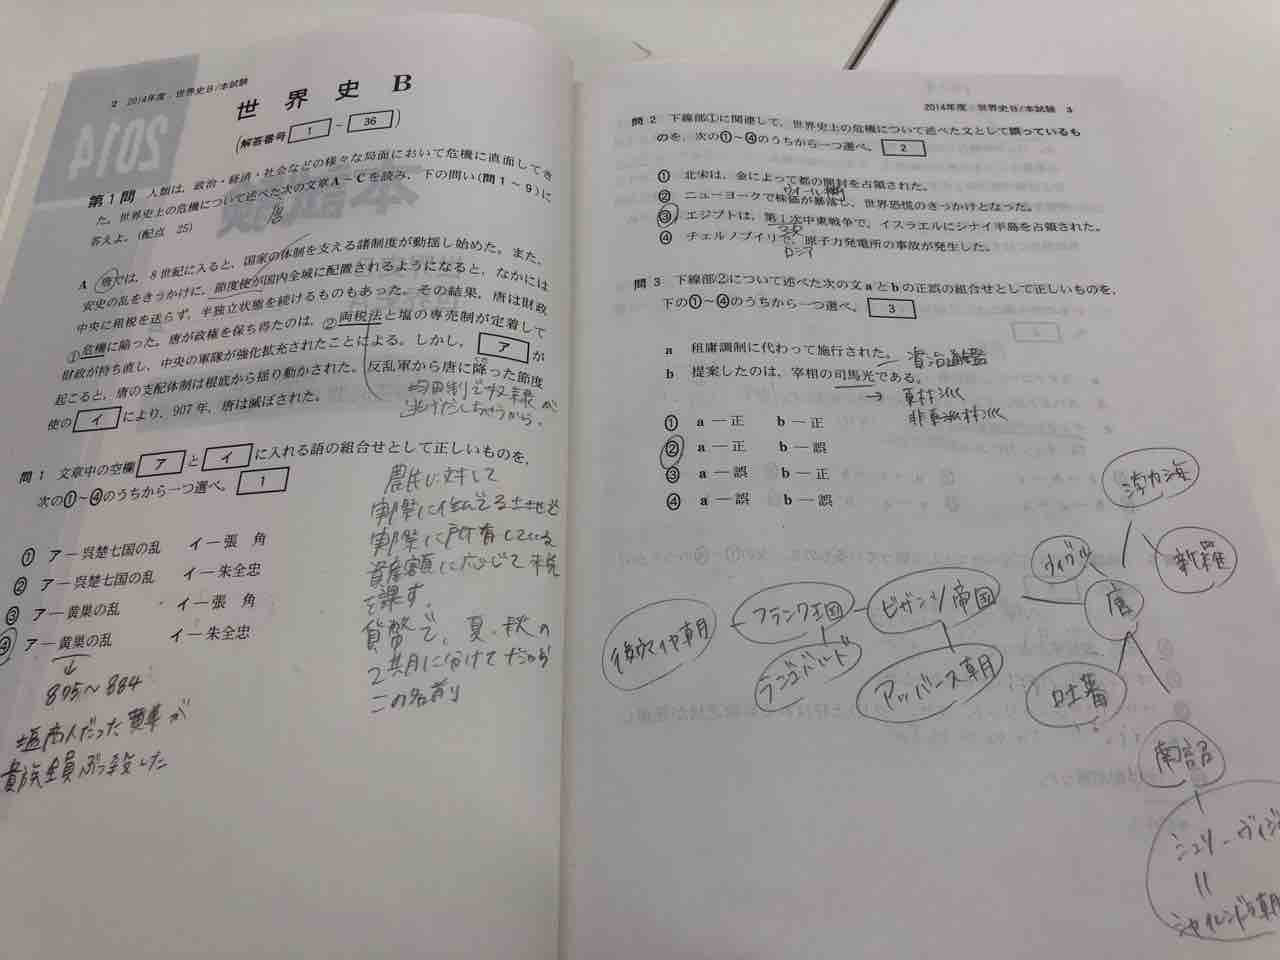 2 2014年度:世界史B/本試験
2014
世界史B
(解答番号 1 ~ 36)
第1問 人類は,政治・経済・社会などの様々な局面において危機に直面してき
た。世界史上の危機について述べた次の文章A~Cを読み,下の問い(問1~9)に
答えよ。(配点 25)
唐
A 唐では,8世紀に入ると,国家の体制を支える諸制度が動揺し始めた。また,
安史の乱をきっかけに,節度使が国内全域に配置されるようになると,なかには
中央に租税を送らず,半独立状態を続けるものもあった。その結果,唐は財政
①危機に陥った。唐が政権を保ち得たのは,②両税法と塩の専売制が定着して
財政が持ち直し,中央の軍隊が強化拡充されたことによる。しかし, ア が
起こると,唐の支配体制は根底から揺り動かされた。反乱軍から唐に降った節度
使の イ により,907年,唐は滅ぼされた。
均田制で収穫が
逃げだしちゃうから。
問1 文章中の空欄 ア と イ に入れる語の組合せとして正しいものを,
次の①~④のうちから一つ選べ。 1
① ア―呉楚七国の乱 イ―張 角
② ア―呉楚七国の乱 イ―朱全忠
③ ア―黄巣の乱 イ―張 角
④ ア―黄巣の乱 イ―朱全忠
↓
875~884
塩商人だった黄巣が
貴族全員ぶっ殺した
農民に対して
実際に住んでる土地と
実際に所有している
資産額に応じて税
を課す。
貨幣で、夏・秋の
2期に分けてだから
この名前
2014年度:世界史B/本試験 3
問2 下線部①に関連して,世界史上の危機について述べた文として誤っているも
のを,次の①~④のうちから一つ選べ。 2
① 北宋は,金によって都の開封を占領された。
② ニューヨークで株価が暴落し,世界恐慌のきっかけとなった。
③ エジプトは,第1次中東戦争で,イスラエルにシナイ半島を占領された。
3次
④ チェルノブイリで,原子力発電所の事故が発生した。
ロシア
問3 下線部②について述べた次の文aとbの正誤の組合せとして正しいものを,
下の①~④のうちから一つ選べ。 3
a 租庸調制に代わって施行された。 資治通鑑
b 提案したのは,宰相の司馬光である。
→ 東林派
非東林派
① a ―正 b ―正
② a ―正 b ―誤
③ a ―誤 b ―正
④ a ―誤 b ―誤
渤海
新羅
ウイグル
唐
ビザンツ帝国
フランク王国
後ウマイヤ朝
ランゴバルド
アッバース朝
吐蕃
南詔
シュリーヴィジ
||
シャイレンドラ朝